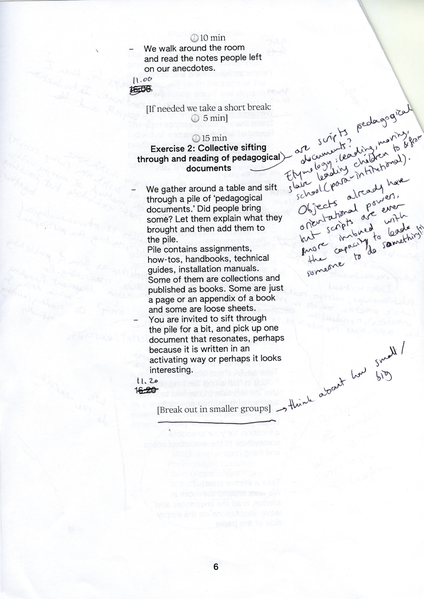 10 min
– We walk around the room
and read the notes people left
on our anecdotes.
11.00
[If needed we take a short break:
5 min]
15 min
Exercise 2: Collective sifting
through and reading of pedagogical
documents
– are scripts pedagogical
documents?
Etymology: leading, moving,
slave leading children to & from
school (para-intitutional).
Objects already have
orientational powers,
but scripts are even
more imbued with
the capacity to leade
someone to do something
– We gather around a table and sift
through a pile of 'pedagogical
documents.' Did people bring
some? Let them explain what they
brought and then add them to
the pile.
Pile contains assignments,
how-tos, handbooks, technical
guides, installation manuals.
Some of them are collections and
published as books. Some are just
a page or an appendix of a book
and some are loose sheets.
– You are invited to sift through
the pile for a bit, and pick up one
document that resonates, perhaps
because it is written in an
activating way or perhaps it looks
interesting.
11.20
[Break out in smaller groups]
→ think about how small/
big
6